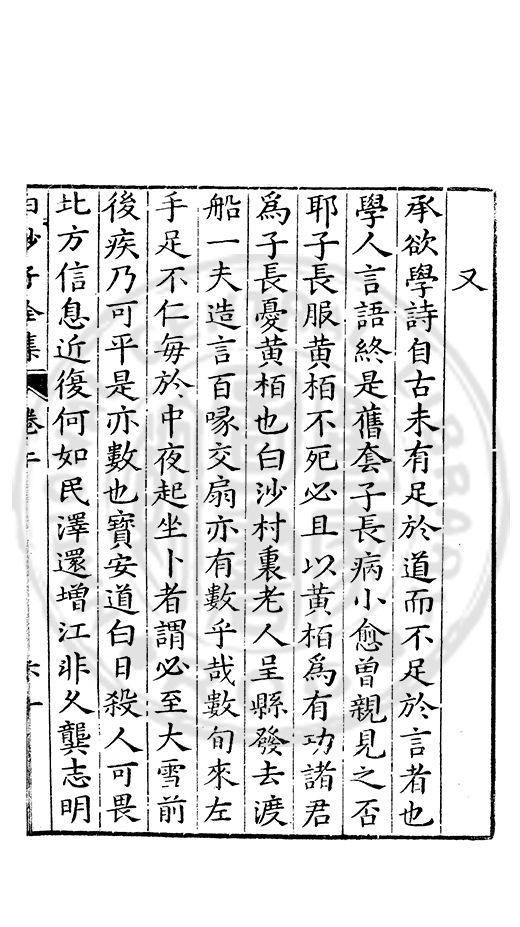 又
承欲學詩自古未有足於道而不足於言者也
學人言語終是舊套子長病小愈曾親見之否
耶子長服黄栢不死必且以黄栢爲有功諸君
爲子長憂黄栢也白沙村裏老人呈縣發去渡
船一夫造言百喙交扇亦有數乎哉數旬來左
手足不仁每於中夜起坐卜者謂必至大雪前
後疾乃可平是亦數也寶安道白日殺人可畏
北方信息近復何如民澤還増江非久龔志明
白沙子全集 卷二 六十